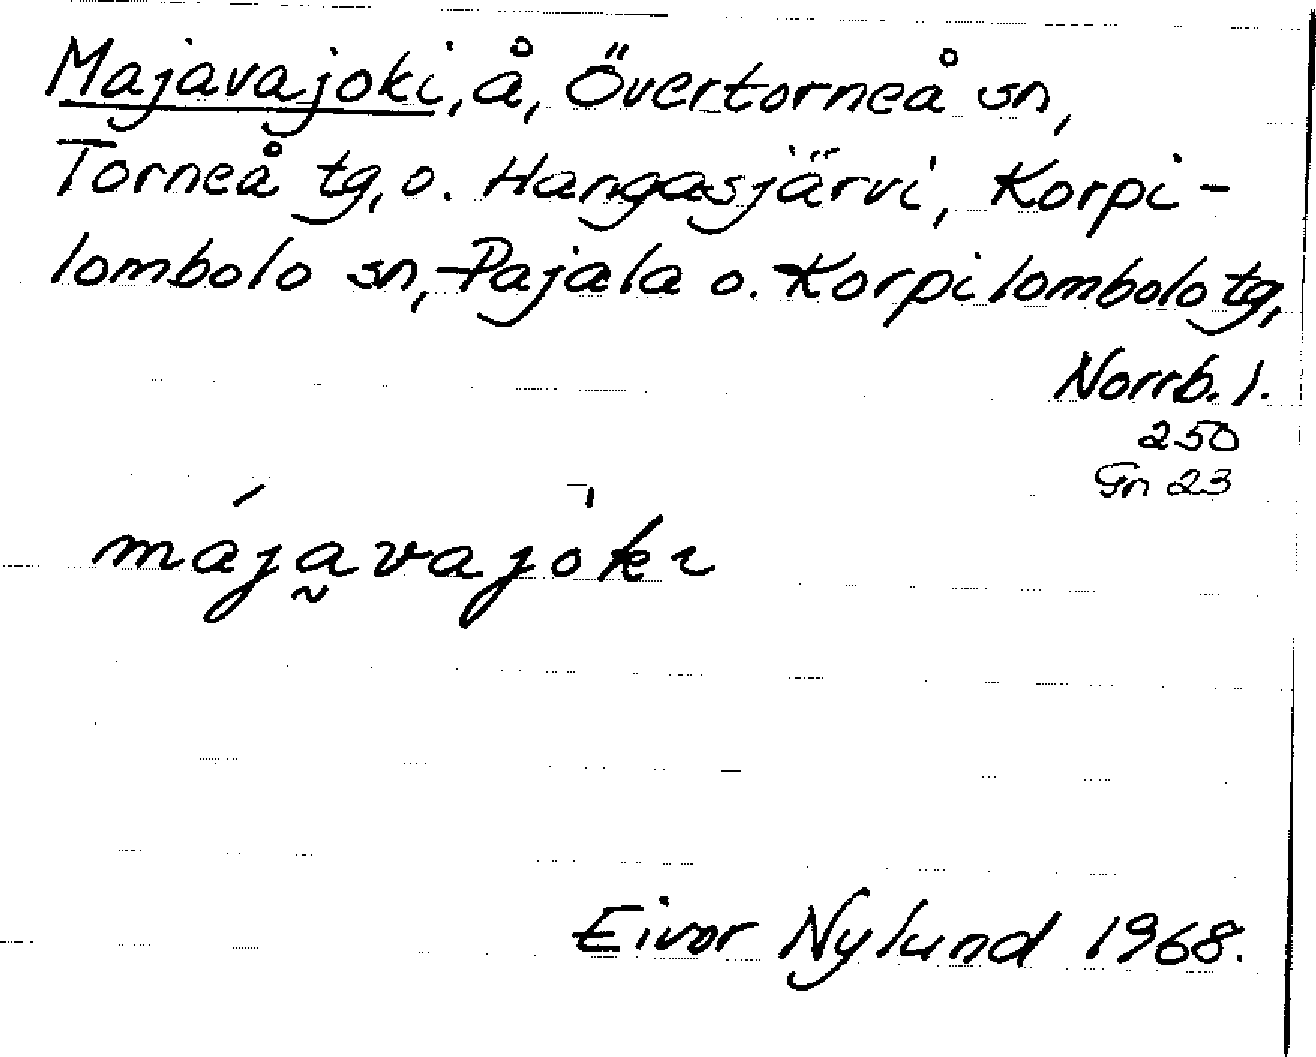 Majavajoki, å, Övertorneå sn,
Torneå tg, o. Hangasjärvi, Korpi-
lombolo sn, Pajala o. Korpilombolo tg,
Norrb. l.
250
Gn 23
májavajòkı
Eivor Nylund 1968.